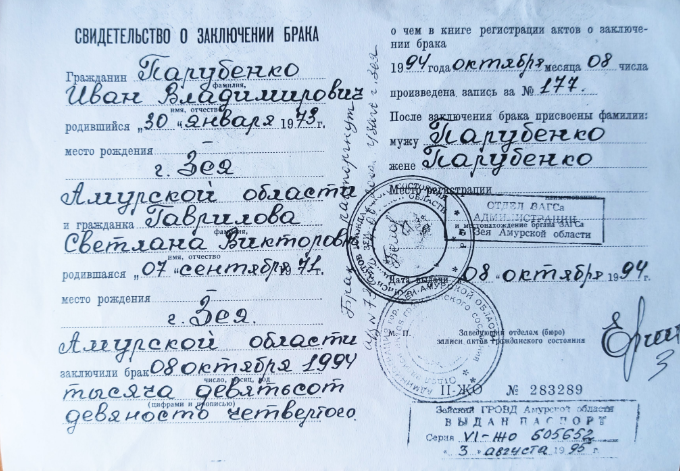 СВИДЕТЕЛЬСТВО О ЗАКЛЮЧЕНИИ БРАКА
Гражданин Парубенко
фамилия,
Иван Владимирович
имя, отчество
родившийся „30“ января 1973 г.
место рождения
г. Зея
Амурской области
и гражданка Гаврилова
фамилия,
Светлана Викторовна
имя, отчество
родившаяся „07“ сентября 1971 г.
место рождения
г. Зея.
Амурской области
заключили брак 08 октября 1994
число, месяц, год
тысяча девятьсот
(цифрами и прописью)
девяносто четвертого.
Брак расторгнут
о чем в книге регистрации актов о заключе-
нии брака
1994 года октября месяца 08 числа
произведена запись за № 177.
После заключения брака присвоены фамилии:
мужу Парубенко
жене Парубенко
Место регистрации
ОТДЕЛ ЗАГСа
АДМИНИСТРАЦИИ
и местонахождение органа ЗАГСа
г. Зея Амурской области
Дата выдачи „08“ октября 1994 г.
М. П.
Заведующий отделом (бюро)
записи актов гражданского состояния
II-ЖО № 283289
Зейский ГРОВД Амурской области
ВЫДАН ПАСПОРТ
Серия VI-ЖО 605652
„3“ августа 1995 г.